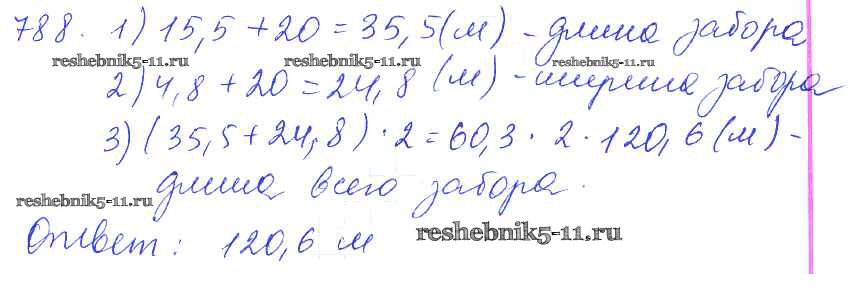 788. 1) 15,5 + 20 = 35,5 (м) - длина забора
reshebnik5-11.ru reshebnik5-11.ru reshebnik5-11.ru
2) 4,8 + 20 = 24,8 (м) - ширина забора
3) (35,5 + 24,8) · 2 = 60,3 · 2 · 120,6 (м) -
длина всего забора.
reshebnik5-11.ru
Ответ: 120,6 м
reshebnik5-11.ru